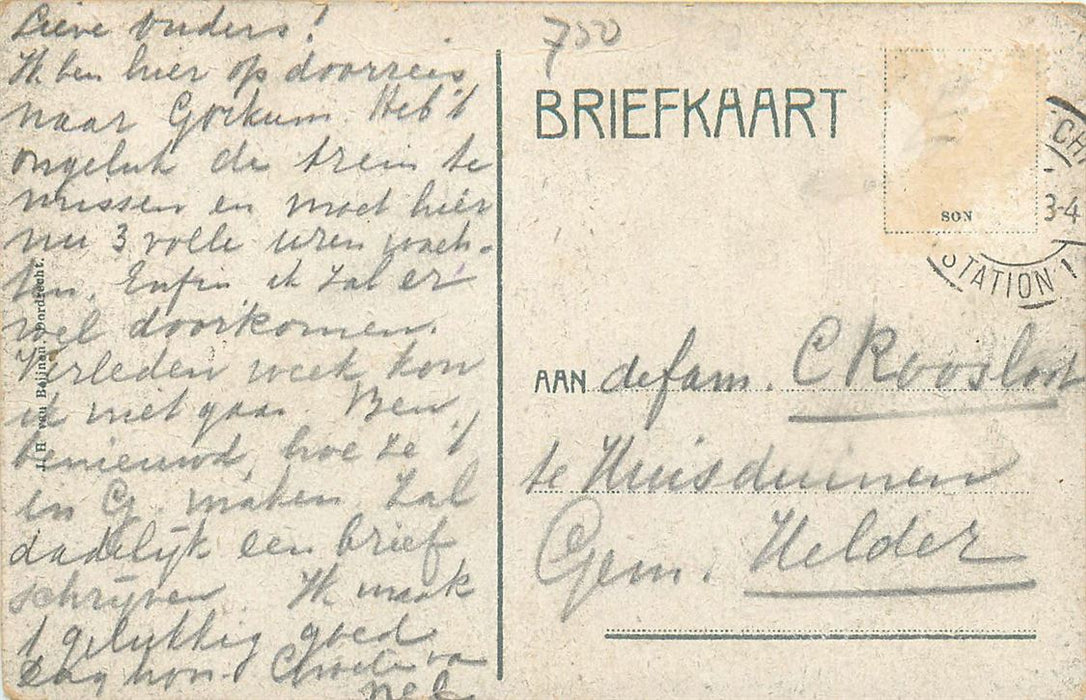 Lieve ouders!
Ik ben hier op doorreis
naar Gorkum. Heb 't
ongeluk de trein te
missen en moet hier
nu 3 volle uren wach-
ten. Enfin ik zal er
wel doorkomen.
Verleden week kon
ik niet gaan. Ben
benieuwd, hoe ze 't
in G. maken. Zal
dadelijk een brief
schrijven. Ik maak
't gelukkig goed
Dag hoor. Groeten van
Nel
J. H. van Beijnen, Dordrecht.
750
BRIEFKAART
SON
CH
3-4
STATION 1
AAN de fam. C Roosloot
te Huisduinen
Gem. Helder